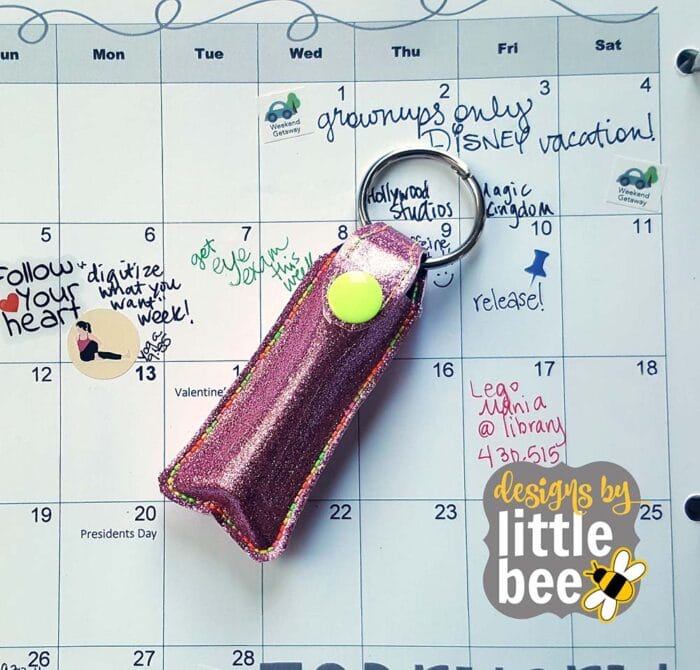 un Mon Tue Wed Thu Fri Sat
1 2 3 4
Weekend
Getaway
grownups only
DISNEY vacation!
Weekend
Getaway
Hollywood
Studios
Magic
Kingdom
5 6 7 8 9 10 11
Follow
Your
heart
+ digitize
what you
want
week!
yoga
get
eye
exam
this
week
release!
12 13 16 17 18
Valentine'
Lego
Mania
@ library
430-515
19 20 22 23 25
Presidents Day
designs by
little
bee
26 27 28